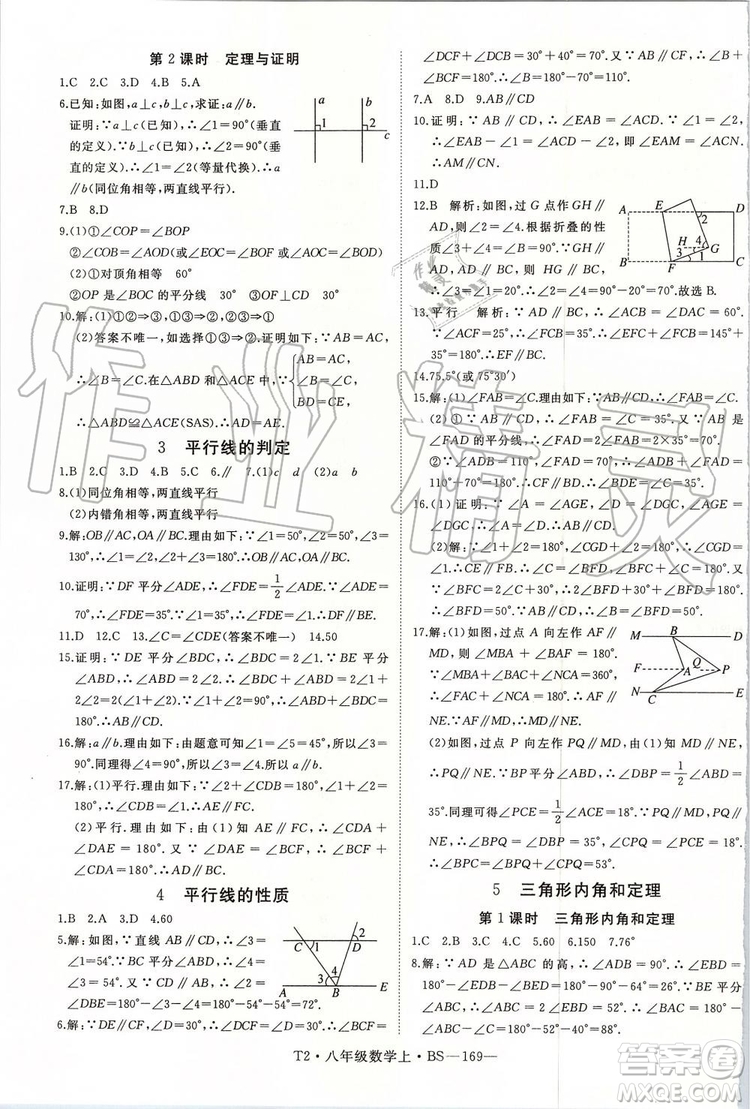 第2课时 定理与证明
1.C 2.C 3.D 4.B 5.A
6.已知:如图,a⊥c,b⊥c,求证:a∥b.
证明:∵a⊥c(已知),∴∠1=90°(垂直
的定义).∵b⊥c(已知),∴∠2=90°(垂
直的定义).∴∠1=∠2(等量代换).∴a∥b
(同位角相等,两直线平行).
a
b
1
2
c
7.B 8.D
9.(1)①∠COP=∠BOP
②∠COB=∠AOD(或∠EOC=∠BOF或∠EOB=∠COF)
(2)①对顶角相等 60°
②OP是∠BOC的平分线 30° ③OF⊥CD 30°
10.解:(1)①②⇒③;①③⇒②;②③⇒①
(2)答案不唯一,如选择①③⇒②.证明如下:∵AB=AC,
∴∠B=∠C.在△ABD和△ACE中,∵
AB=AC,
∠B=∠C,
BD=CE,
∴△ABD≌△ACE(SAS).∴AD=AE.
3 平行线的判定
1.B 2.C 3.D 4.B 5.C 6.∥ 7.(1)c d (2)a b
8.(1)同位角相等,两直线平行
(2)内错角相等,两直线平行
9.解:OB∥AC,OA∥BC.理由如下:∵∠1=50°,∠2=50°,∴
∠1=∠2.∴OB∥AC.∵∠2=50°,∠3=
130°,∴∠2+∠3=180°.∴OA∥BC.
10.证明:∵DF平分∠ADE,∴∠FDE=1/2∠ADE.∵∠ADE=
70°,∴∠FDE=35°.∵∠1=35°,∴∠1=∠FDE.∴DF∥BE.
11.D 12.C 13.∠C=∠CDE(答案不唯一) 14.50
15.证明:∵DE平分∠BDC,∴∠BDC=2∠1.∵BE平分
∠ABD,∴∠ABD=2∠2.∴∠ABD+∠BDC=2∠1+
2∠2=2(∠1+∠2).∵∠1+∠2=90°,∴∠ABD+∠BDC=
180°.∴AB∥CD.
16.解:a∥b.理由如下:由题意可知∠1+∠5=90°,所以∠1=
∠3=50°.同理得∠4=50°.所以∠3=∠4.所以a∥b.
17.解:(1)平行.理由如下:∵∠1+∠2=180°,∠2+∠CDB=
180°,∴∠1=∠CDB.∴AE∥FC.
(2)平行.理由如下:由(1)知AE∥CF,∴∠CDA+
∠DAE=180°.∵∠DAE=∠BCF,∴∠CDA+∠BCF=
180°.∴AD∥BC.
4 平行线的性质
1.B 2.A 3.D 4.60
5.解:如图,∵直线AB∥CD,∴∠3=
∠1=54°.∵BC平分∠ABD,∴∠4=
∠3=54°.∵AB∥CD,∴∠2=
∠DBE=180°-∠3-∠4=180°-54°-54°=72°.
C
1
D
2
3
4
A
B
E
6.解:∵DE∥CF,∠D=30°,∴∠DCF=∠D=30°.∴
∠DCF+∠BCF=30°+40°=70°.又∵AB∥CF,∴∠B+
∠BCF=180°.∴∠B=180°-70°=110°.
7.A 8.D 9.AB∥CD
10.证明:∵AB∥CD,∴∠EAB=∠ACD.又∵∠1=∠2,
∴∠EAB-∠1=∠ACD-∠2,即∠EAM=∠ACN.∴
AM∥CN.
11.D
12.B 解析:如图,过G点作GH∥
AD,则∠2=∠4.根据折叠的性质,
得∠3+∠4=∠B=90°.∵AD∥BC,
HG∥AD,∴HG∥BC.∴∠1=
∠3=20°.∴∠4=90°-20°=70°.∴∠2=70°.故选B.
A
E
D
2
H
4
3
G
1
B
F
C
13.平行 解析:∵AD∥BC,∴∠ACB=∠DAC=65°.
∵∠ACF=25°,∴∠BCF=∠ACB-∠ACF=40°.
∵∠EFC=140°,∴∠BCF+∠EFC=180°.∴EF∥BC.
14.75.5°(或75°30′)
15.解:(1)∵∠FAB=∠C,∴AB∥CD.∴∠FAB=∠2.∵AB是
∠FAD的平分线,∴∠FAD=2∠FAB=2×35°=70°.
(2)∵∠ADB=110°,∠FAD=70°,∴∠ADB+∠FAD=
110°+70°=180°.∴CF∥BD.∴∠BDE=∠C=35°.
16.(1)证明:∵∠A=∠AGE,∠D=∠DGC,∠AGE=
∠DGC,∴∠A=∠D.∴AB∥CD.
(2)解:∵∠1+∠2=180°,∠CGD+∠2=180°,∴∠CGD=
∠1.∴CE∥FB.∴∠C=∠BFD,∠CEB+∠B=180°.又
∵∠BEC=2∠B+30°,∴2∠B+30°+∠B=180°.∴∠B=50°.
∵AB∥CD,∴∠B=∠BFD.∴∠C=∠BFD=50°.
17.解:(1)如图,过点A向左作AF∥
MD,∴∠BAF=∠ABM.∵∠BAC+
∠ABM+∠NCA=360°,∴∠CAF+
∠NCA=180°.∴AF∥NE.
又∵AF∥MD,∴MD∥NE.
(2)如图,过点P向左作PQ∥MD,
∴∠BPQ=∠DBP.∵BP平分∠ABD,∴∠DBP=1/2∠ABD=
35°.同理可得∠PCE=1/2∠ACE=18°.∵MD∥NE,∴PQ∥
NE.∴∠CPQ=∠PCE=18°.∴∠BPC=
∠BPQ+∠CPQ=53°.
M
B
D
F
A
Q
P
N
C
E
5 三角形内角和定理
第1课时 三角形内角和定理
1.C 2.B 3.A 4.C 5.60 6.150 7.76°
8.解:∵AD是△ABC的高,∴∠ADB=90°.∴∠EBD=
180°-∠EDB-∠BED=180°-90°-64°=26°.∵BE平分
∠ABC,∴∠ABC=2∠EBD=52°.∴∠BAC=180°-
∠ABC-∠C=180°-52°-70°=58°.
T2·八年级数学上·BS—169—
作业精灵
答案圈
MXQE.COM